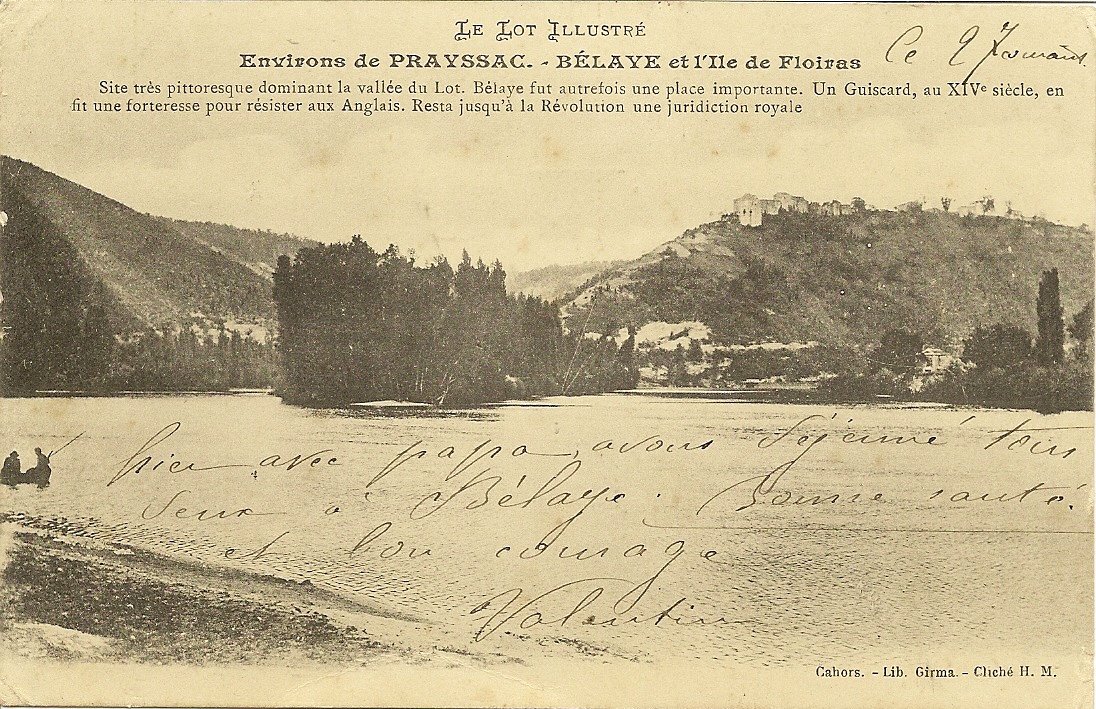 LE LOT ILLUSTRÉ
Environs de PRAYSSAC. - BÉLAYE et l'Ile de Floiras
Ce 2
Site très pittoresque dominant la vallée du Lot. Bélaye fut autrefois une place importante. Un Guiscard, au XIVe siècle, en
fit une forteresse pour résister aux Anglais. Resta jusqu'à la Révolution une juridiction royale
hier avec papa, avons déjeuné tous
deux à Bélaye. Bonne santé.
et bon courage
Valentin
Cahors. - Lib. Girma. - Cliché H. M.